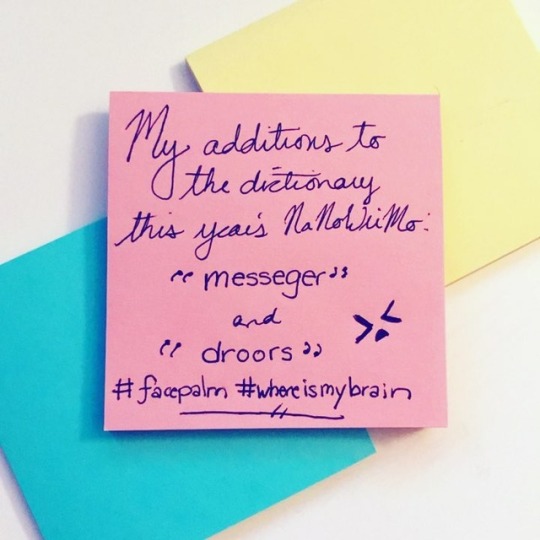 My additions to
the dictionary
this year's NaNoWriMo:
"messeger"
and
"droors"
#facepalm #whereismybrain